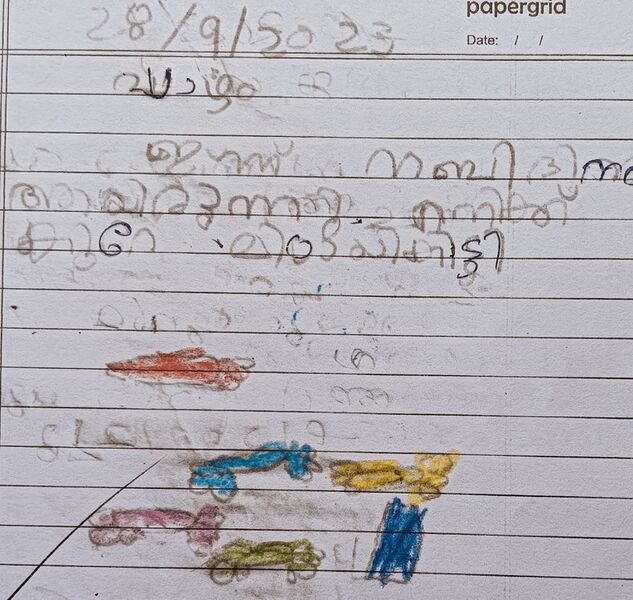 papergrid
Date: / /
28/9/2023
വ്യാഴം
ഇന്ന് നബിദിനം
ആയിരുന്നു. എനിക്ക്
കുറേ മിഠായി കിട്ടി